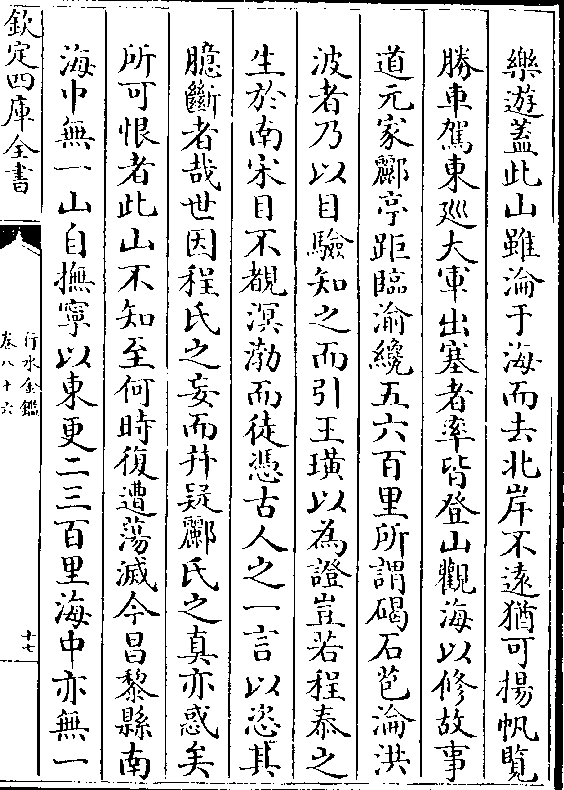 樂遊蓋此山雖淪于海而去北岸不遠猶可揚帆覽
勝車駕東廵大軍出塞者率皆登山觀海以修故事
道元家酈亭距臨渝纔五六百里所謂碣石苞淪洪
波者乃以目驗知之而引王璜以為證豈若程泰之
生於南宋目不覩溟渤而徒憑古人之一言以恣其
臆斷者哉世因程氏之妄而幷疑酈氏之真亦惑矣
所可恨者此山不知至何時復遭蕩滅今昌黎縣南
海中無一山自撫寧以東更二三百里海中亦無一
欽定四庫全書
行水金鑑
卷八十六
十七